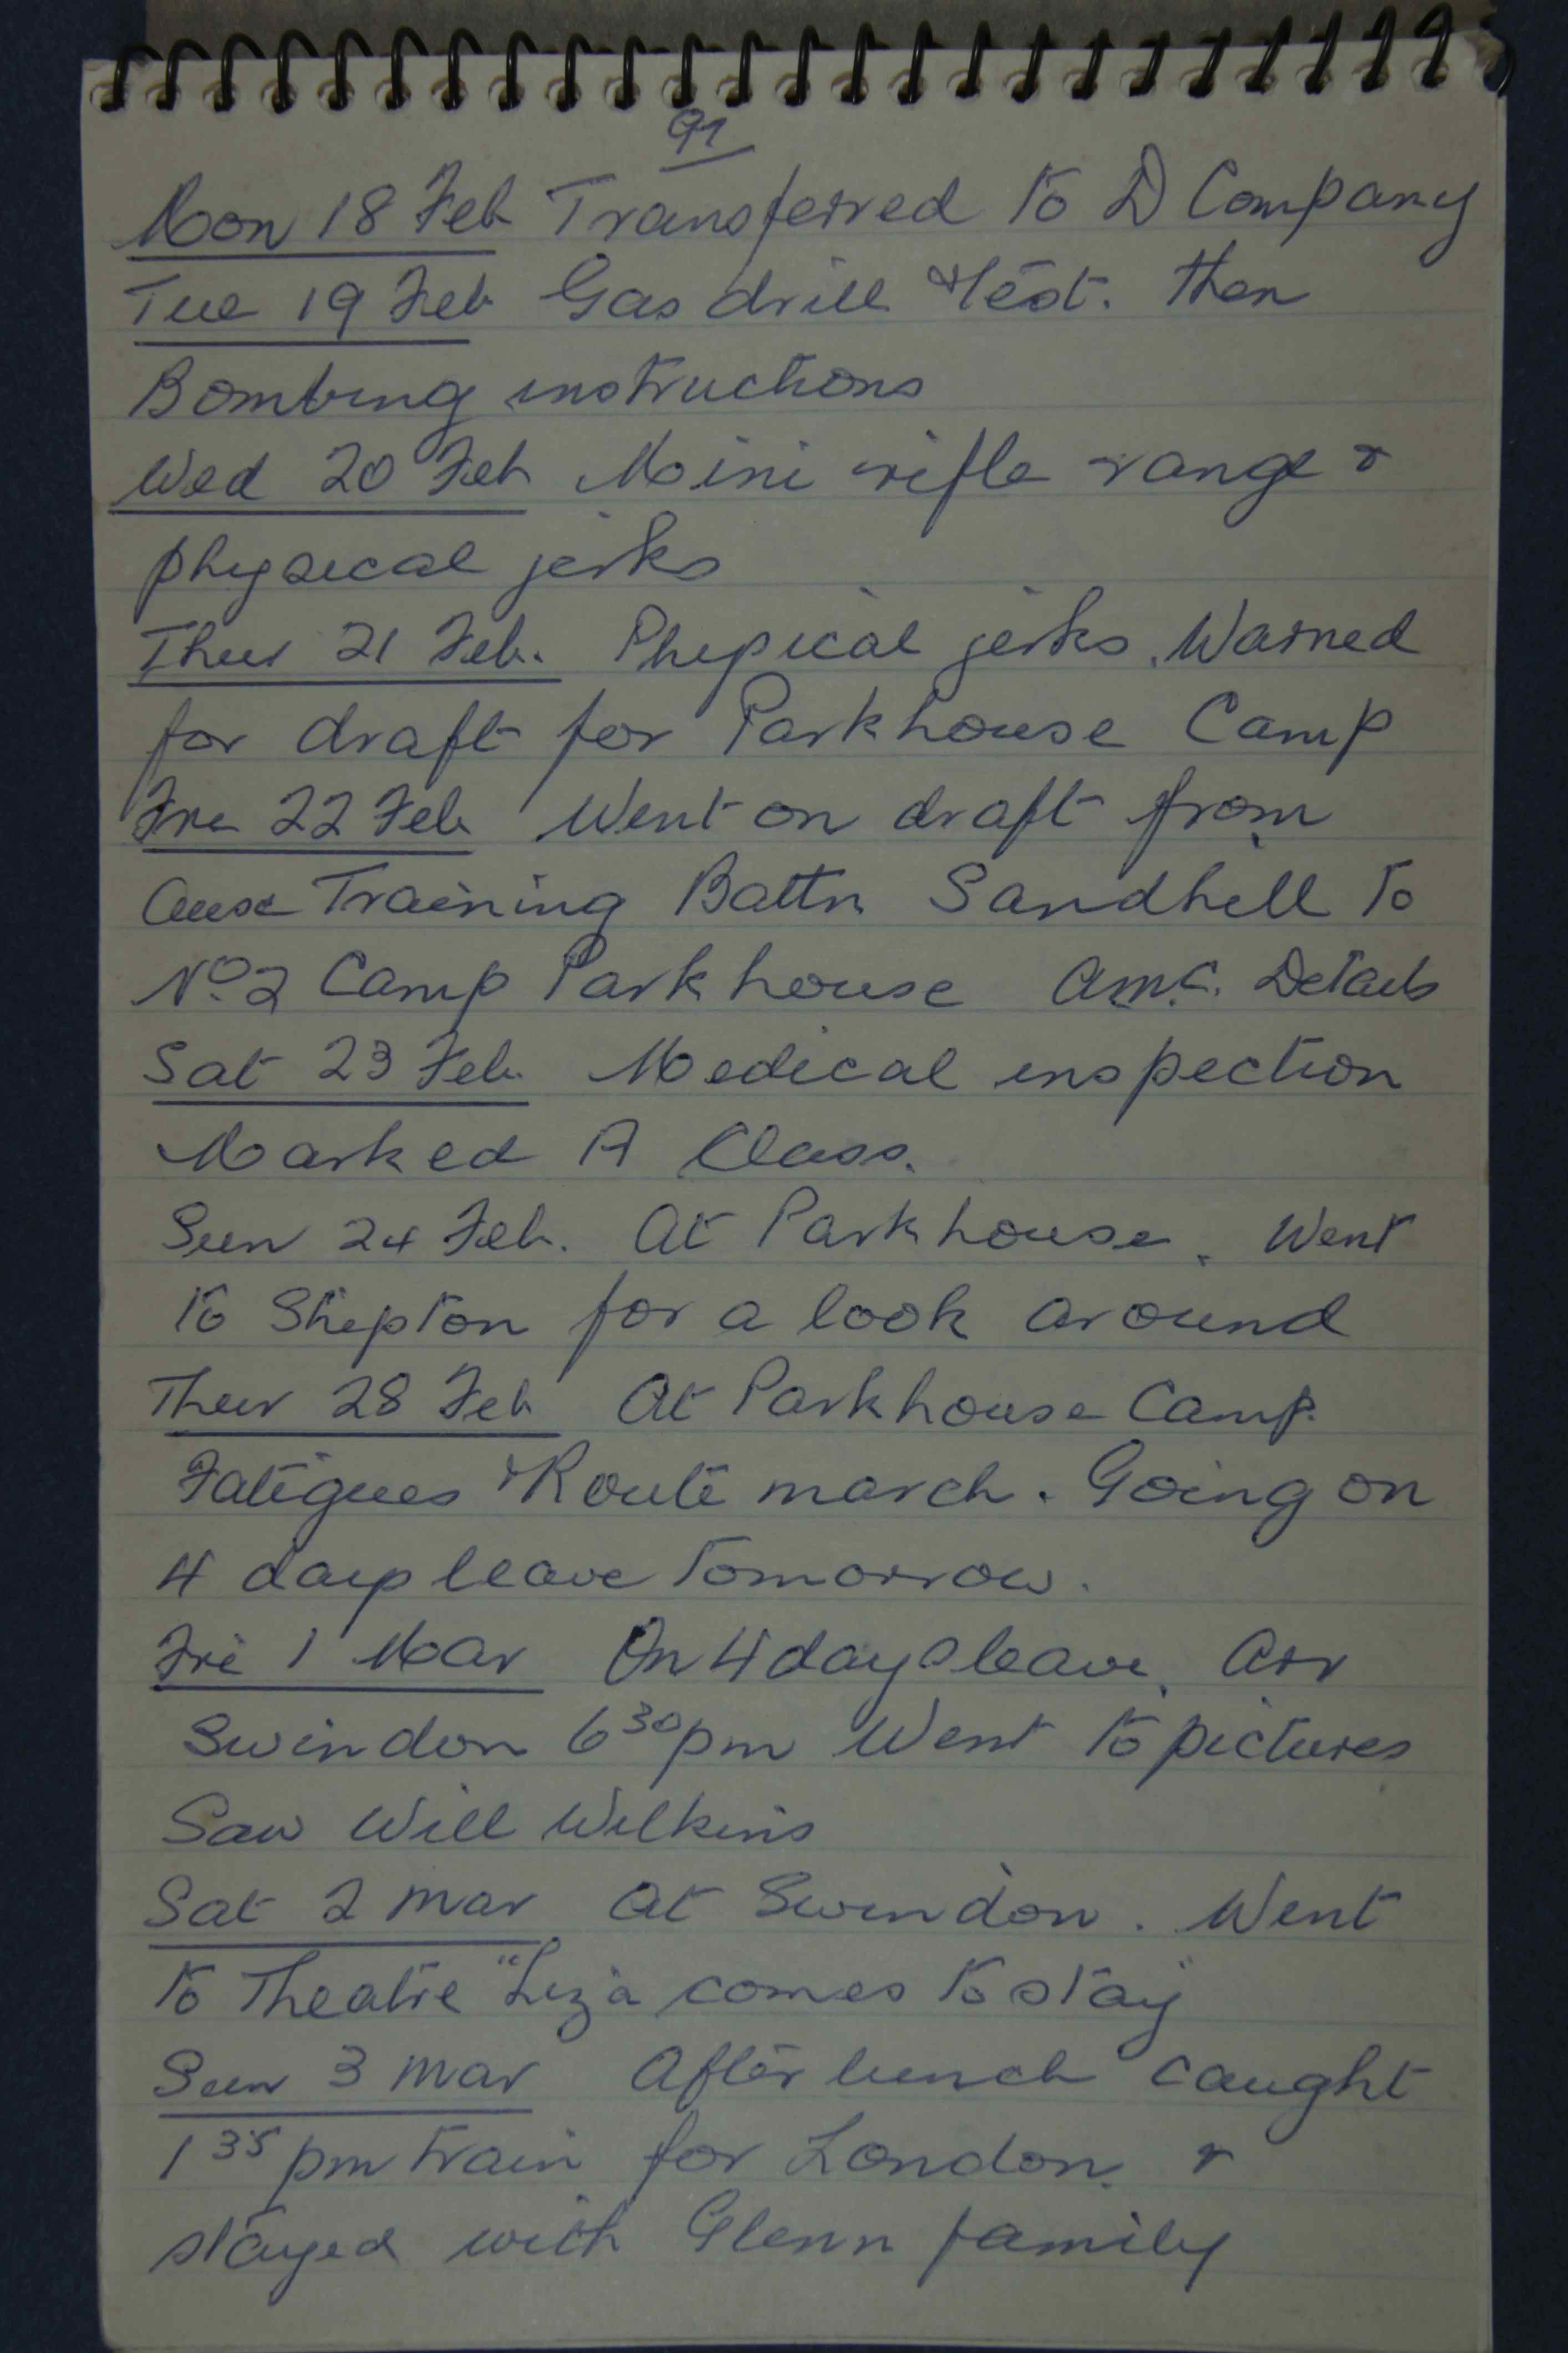 91
Mon 18 Feb Transferred to D Company
Tue 19 Feb Gas drill & test. then
Bombing instructions
Wed 20 Feb Mini rifle range &
physical jerks
Thur 21 Feb. Physical jerks. Warned
for draft for Parkhouse Camp
Fri 22 Feb Went on draft from
Aust Training Battn Sandhill to
No. 2 Camp Parkhouse A.M.C. Details
Sat 23 Feb. Medical inspection
Marked A Class.
Sun 24 Feb. At Parkhouse. Went
to Shepton for a look around
Thur 28 Feb At Parkhouse Camp.
Fatigues & Route march. Going on
4 days leave tomorrow.
Fri 1 Mar On 4 days leave. Arr
Swindon 6 30 pm Went to pictures
Saw Will Wilkins
Sat 2 Mar At Swindon. Went
to Theatre "Liza comes to stay"
Sun 3 Mar After lunch caught
1 35 pm train for London &
stayed with Glenn family